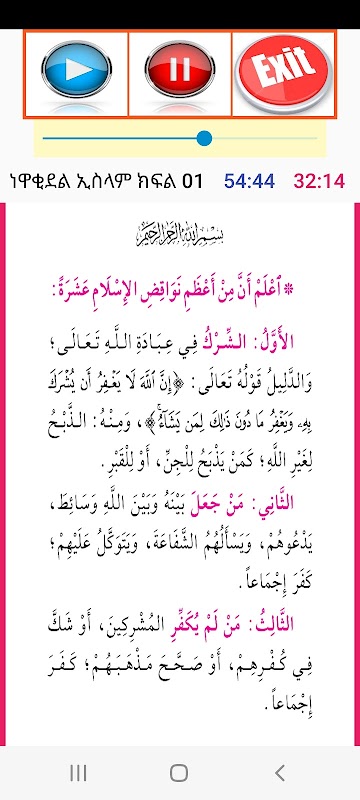 Exit
ነዋቂደል ኢስላም ክፍል 01 54:44 32:14
بسم الله الرحمن الرحيم
* ٱعْلَمْ أَنَّ مِنْ أَعْظَمِ نَوَاقِضِ الإِسْلَامِ عَشَرَةً :
الأَوَّلُ: الشِّرْكُ فِي عِبَادَةِ اللَّهِ تَعَالَى؛
وَالدَّلِيلُ قَوْلُهُ تَعَالَى: ﴿إِنَّ ٱللَّهَ لَا يَغْفِرُ أَن يُشْرَكَ
بِهِۦ وَيَغْفِرُ مَا دُونَ ذَٰلِكَ لِمَن يَشَآءُ﴾، وَمِنْهُ: الذَّبْحُ
لِغَيْرِ اللَّهِ؛ كَمَنْ يَذْبَحُ لِلْجِنِّ، أَوْ لِلْقَبْرِ.
الثَّانِي: مَنْ جَعَلَ بَيْنَهُ وَبَيْنَ اللَّهِ وَسَائِطَ،
يَدْعُوهُمْ، وَيَسْأَلُهُمُ الشَّفَاعَةَ، وَيَتَوَكَّلُ عَلَيْهِمْ؛
كَفَرَ إِجْمَاعاً.
الثَّالِثُ: مَنْ لَمْ يُكَفِّرِ المُشْرِكِينَ، أَوْ شَكَّ
فِي كُفْرِهِمْ، أَوْ صَحَّحَ مَذْهَبَهُمْ؛ كَفَرَ
إِجْمَاعاً.